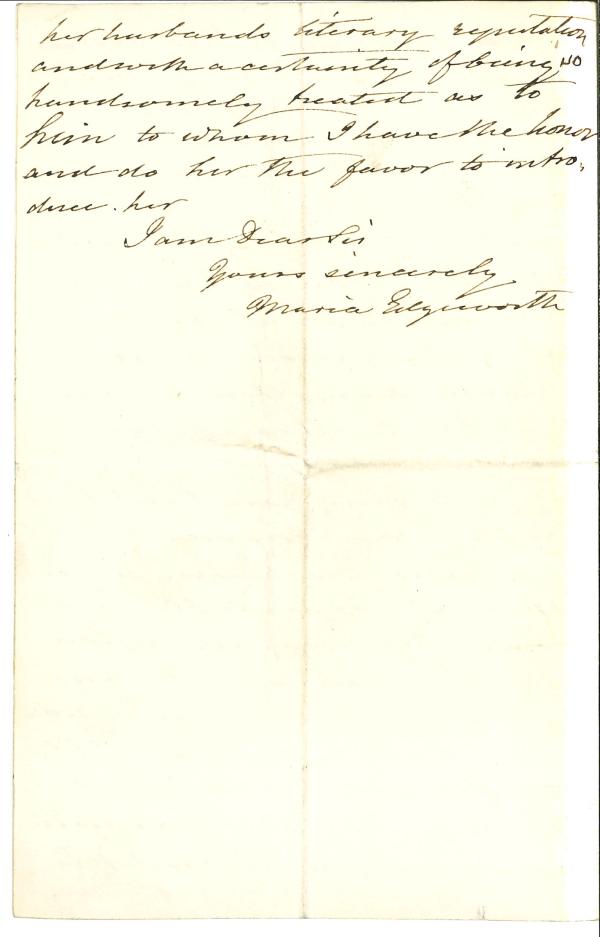 her husbands literary reputation
and with a certainty of being so
handsomely treated as to
him to whom I have the honor
and do her the favor to intro,
duce. her
I am Dear Sir
Yours sincerely
Maria Edgeworth